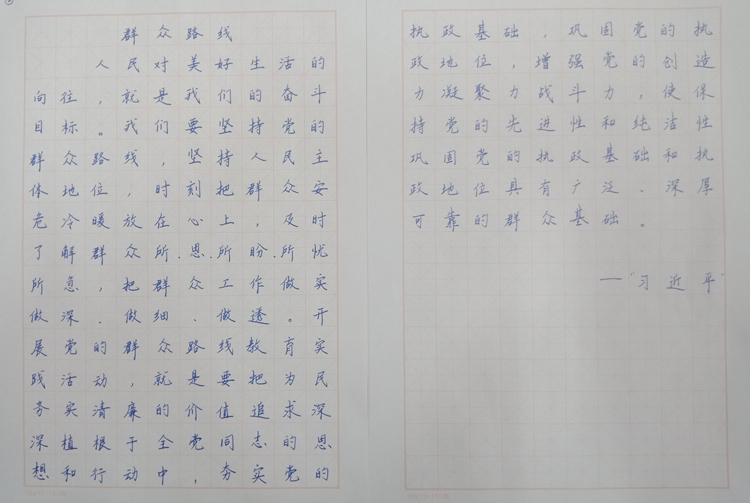 群众路线
人民对美好生活的
向往，就是我们的奋斗
目标。我们要坚持党的
群众路线，坚持人民主
体地位，时刻把群众安
危冷暖放在心上，及时
了解群众所思、所盼、所忧
所急，把群众工作做实
做深、做细、做透。开
展党的群众路线教育实
践活动，就是要把为民
务实清廉的价值追求深
深植根于全党同志的思
想和行动中，夯实党的
执政基础，巩固党的执
政地位，增强党的创造
力凝聚力战斗力，使保
持党的先进性和纯洁性
巩固党的执政基础和执
政地位具有广泛、深厚
可靠的群众基础。
一"习近平"